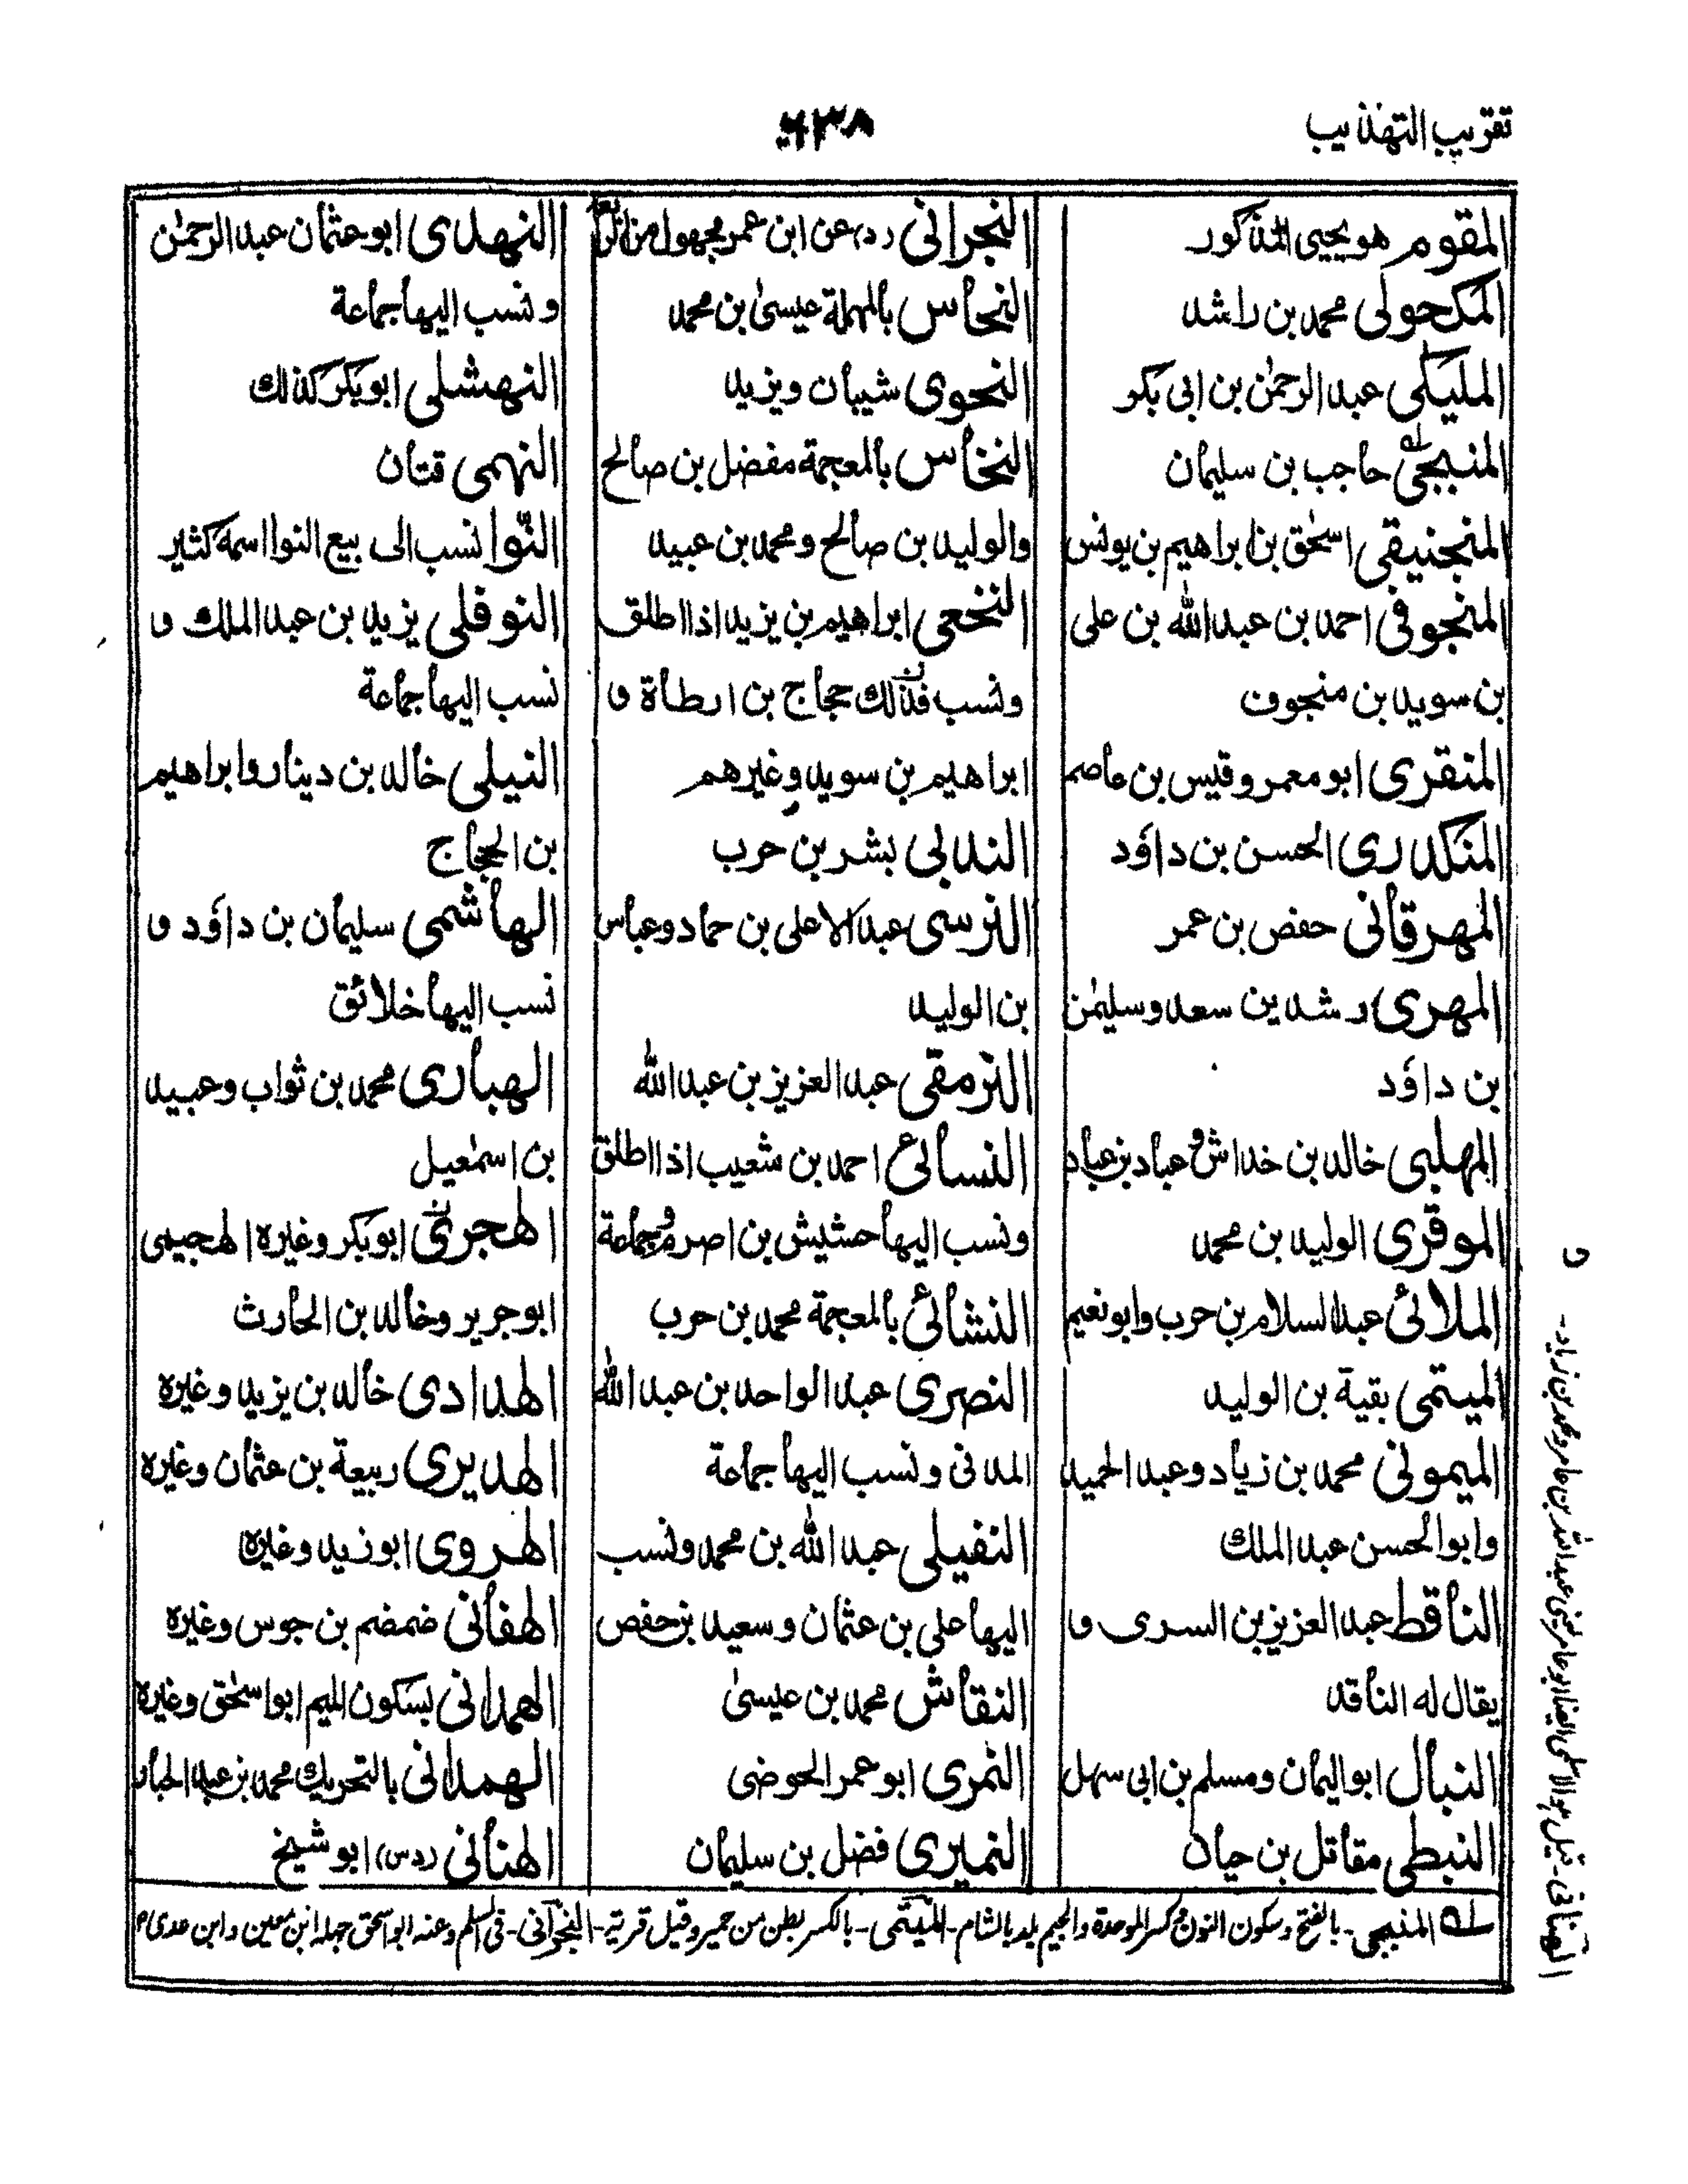 تقريب التهذيب
٦٣٨
المقوم هو يحيى المذكور
المكحولى محمد بن راشد
المليكى عبد الرحمٰن بن ابى بكر
المنبجى حاجب بن سليمان
المنجنيقى اسحٰق بن ابراهيم بن يونس
المنجوفى احمد بن عبد الله بن على
بن سويد بن منجوف
المنقرى ابو معمر و قيس بن عاصم
المنكدرى الحسن بن داؤد
المهرقانى حفص بن عمر
المهرى رشدين سعد و سليمٰن
بن داؤد
المهلبى خالد بن خداش و عباد بن عباد
الموقرى الوليد بن محمد
الملائى عبد السلام بن حرب وابو نعيم
الميتمى بقية بن الوليد
الميمونى محمد بن زياد و عبد الحميد
وابو الحسن عبد الملك
الناقط عبد العزيز بن السرى و
يقال له الناقد
النبال ابو اليمان ومسلم بن ابى سهل
النبطى مقاتل بن حيان
النجرانى (د) عن ابن عمر مجهول من الرابعة
النحاس بالمهملة عيسىٰ بن محمد
النحوى شيبان ويزيد
النخاس بالمعجمة مفضل بن صالح
والوليد بن صالح و محمد بن عبيد
النخعى ابراهيم بن يزيد اذا اطلق
ونسب كذلك حجاج بن ارطاة و
ابراهيم بن سويد وغيرهم
الندبى بشر بن حرب
النرسى عبد الاعلى بن حماد وعباس
بن الوليد
النرمقى عبد العزيز بن عبد الله
النسائى احمد بن شعيب اذا اطلق
ونسب اليها حشيش بن اصرم وجماعة
النشائى بالمعجمة محمد بن حرب
النصرى عبد الواحد بن عبد الله
المدنى ونسب اليها جماعة
النفيلى عبد الله بن محمد ونسب
اليها على بن عثمان و سعيد بن حفص
النقاش محمد بن عيسىٰ
النمرى ابو عمر الحوضى
النميرى فضل بن سليمان
النهدى ابو عثمان عبد الرحمٰن
ونسب اليها جماعة
النهشلى ابو بكر كذلك
النهمى قتان
النّوا نسب الى بيع النوا اسمه كثير
النوفلى يزيد بن عبد الملك و
نسب اليها جماعة
النيلى خالد بن دينار وابراهيم
بن الحجاج
الهاشمى سليمان بن داؤد و
نسب اليها خلائق
الهبارى محمد بن ثواب وعبيد
بن اسمٰعيل
الهجرى ابو بكر وغيره الهجيمى
ابو جرير وخالد بن الحارث
الهدادى خالد بن يزيد وغيره
الهديرى ربيعة بن عثمان وغيره
الهروى ابو زيد وغيره
الهفانى ضمضم بن جوس وغيره
الهمدانى بسكون الميم ابو اسحٰق وغيره
الهمدانى بالتحريك محمد بن عبد الجبار
الهنائى (دس) ابو شيخ
له المنبجى - بالفتح وسكون النون وكسر الموحدة والجيم بلد بالشام - الميتمى - بالكسر بطن من حمير وقيل قرية - النجرانى - فى السلم وعنه ابو اسحق جهله ابن معين وابن عدى